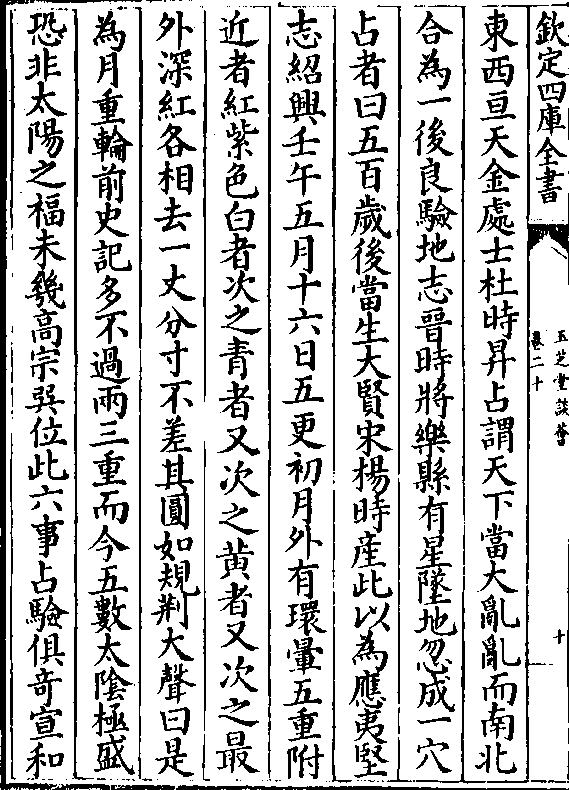 欽定四庫全書
玉芝堂談薈
卷二十
十
東西亘天金處士杜時昇占謂天下當大亂亂而南北
合為一後良驗地志晉時將樂縣有星墜地忽成一穴
占者曰五百歲後當生大賢宋楊時産此以為應夷堅
志紹興壬午五月十六日五更初月外有環暈五重附
近者紅紫色白者次之青者又次之黄者又次之最
外深紅各相去一丈分寸不差其圓如規荆大聲曰是
為月重輪前史記多不過兩三重而今五數太陰極盛
恐非太陽之福未幾高宗巽位此六事占驗俱奇宣和